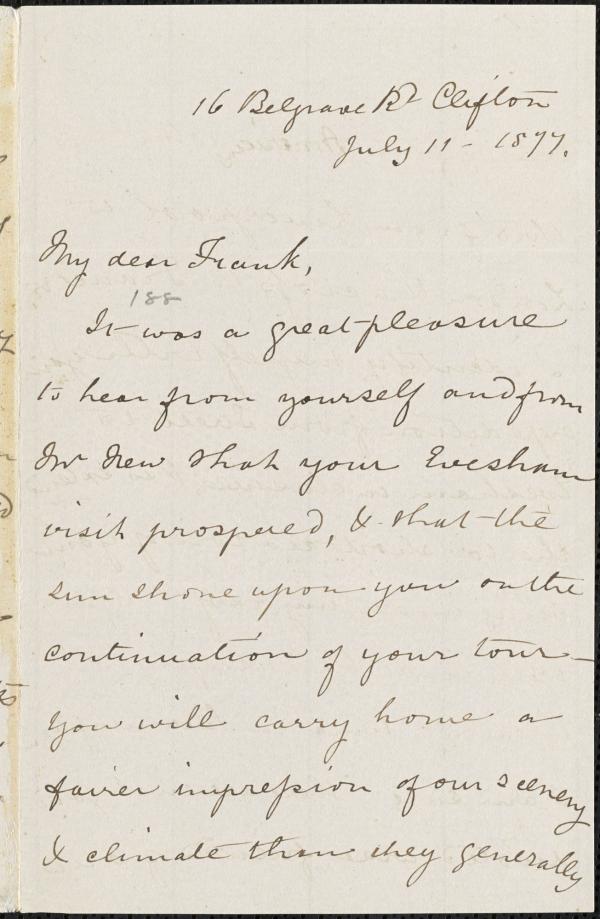 16 Belgrave Rd Clifton
July 11 - 1877.
My dear Frank,
188
It was a great pleasure
to hear from yourself and from
Mr New that your Evesham
visit prospered, & that the
sun shone upon you on the
continuation of your tour -
You will carry home a
fairer impression of our scenery
& climate than they generally